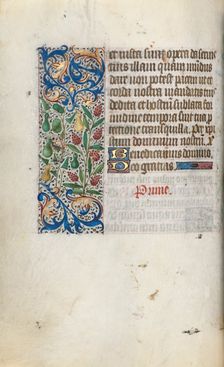 et iusta sunt opera da seruis
tuis illam quam mundus
dare non potest pacem ut et
corda nostra mandatis tuis
dedita et hostiũ sublata for
midine tempora sint tua p
tectione tranquilla. Per xp
istum dominum nostrum.
Benedicamus domino.
Deo gratias.
Prime.